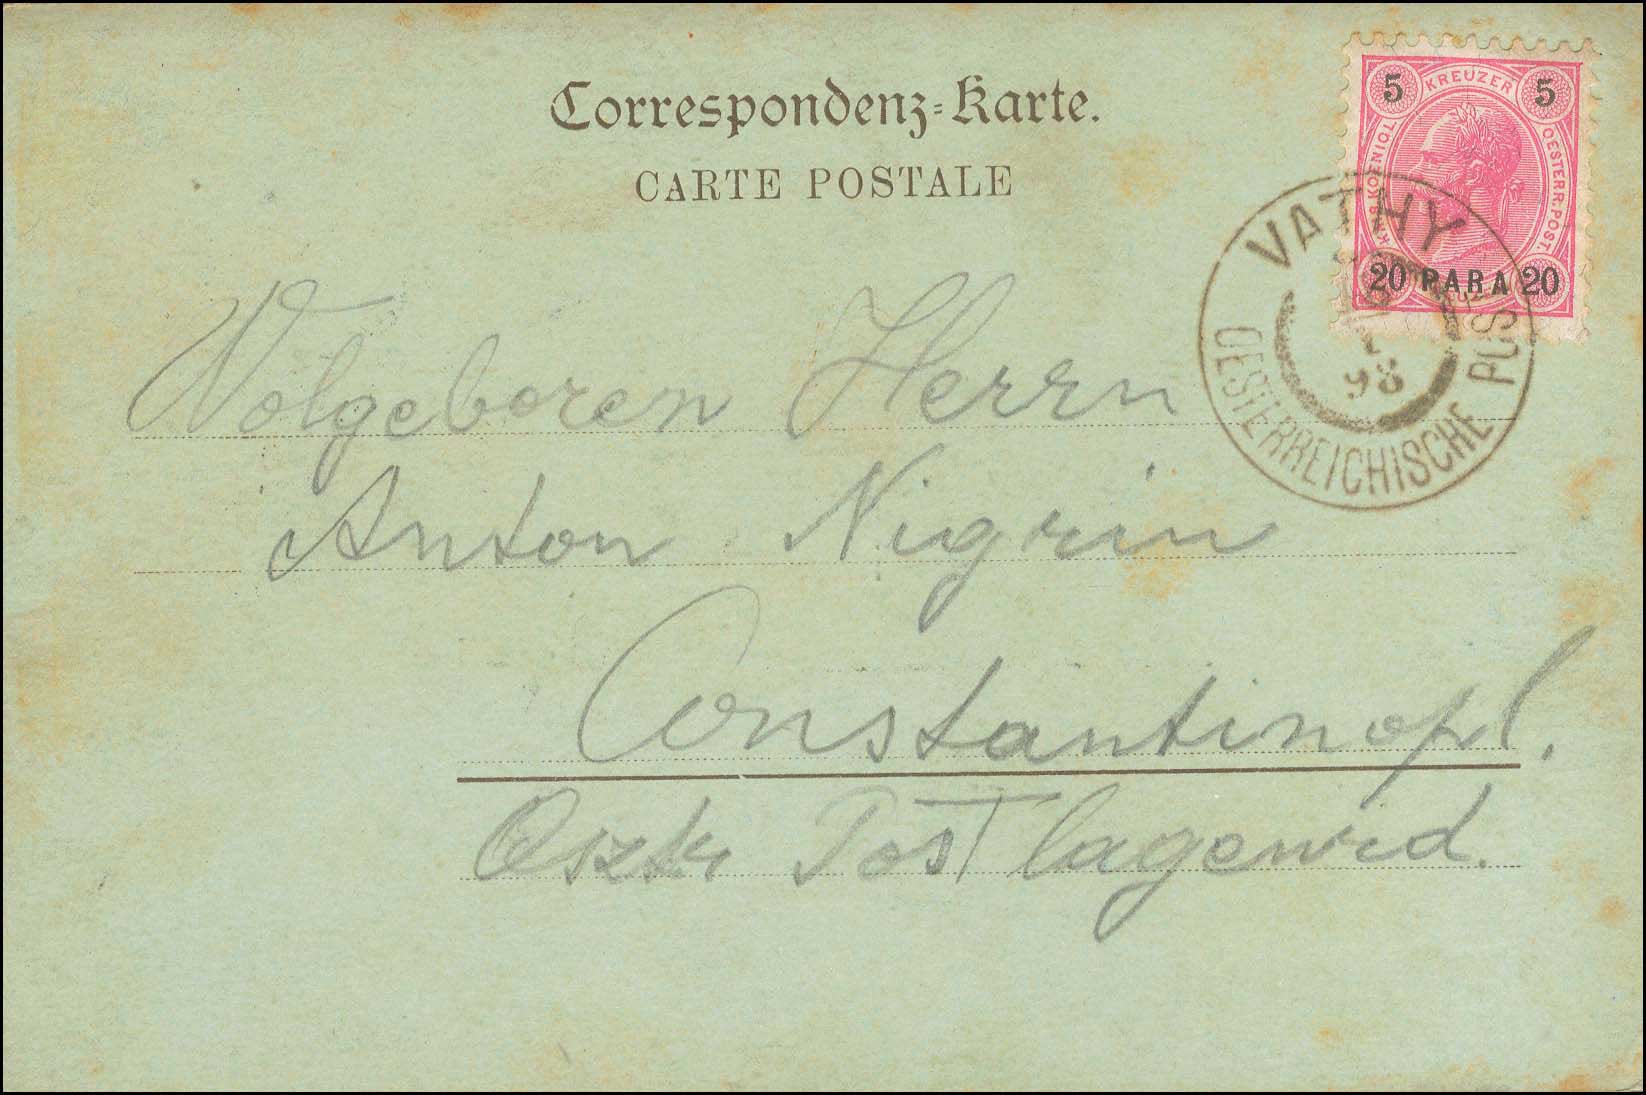 Correspondenz=Karte.
CARTE POSTALE
5 KREUZER 5
K.K. & KOENIGL. OESTERR. POST.
20 PARA 20
VATHY
98
OESTERREICHISCHE POST
Wolgeboren Herrn
Anton Nigrin
Constantinopl.
Postlagernd.